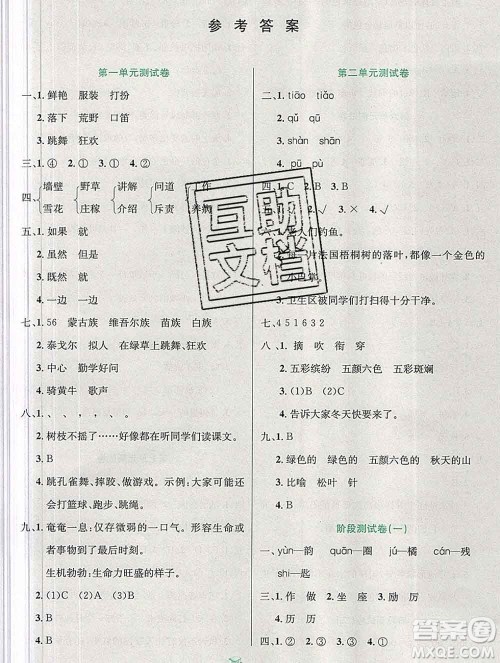 参考答案
第一单元测试卷
一、1. 鲜艳 服装 打扮
2. 落下 荒野 口笛
3. 跳舞 狂欢
三、1. ④ 2. ① 3. ①
四、墙壁 野草 讲解 问道 工作
雪花 庄稼 介绍 斥责 养病
五、1. 如果 就
2. 虽然 但是
3. 虽然 但是
4. 一边 一边
七、1. 56 蒙古族 维吾尔族 苗族 傣族
2. 泰戈尔 拟人 在绿草上跳舞、狂欢
3. 中心 勤学好问
4. 骑黄牛 歌声
八、1. 、 , 、 , 。
2. 树枝不摇了……好像都在听同学们读课文。
3. B
4. 跳孔雀舞、摔跤、做游戏。示例：同学们正在打篮球、跑步、跳绳。
九、1. 奄奄一息：仅存微弱的一口气。形容生命或者事物到了最后时刻。
生机勃勃：生命力旺盛的样子。
2. (1)A (2)C
3. B
4. B
第二单元测试卷
二、1. tiāo tiǎo
2. qǔ qū
3. shàn shān
4. pū pù
四、1. C 2. B 3. B
√ 3. × 4. √
人们钓鱼。
片法国梧桐树的落叶，都像一个金色的
小巴掌。
3. 卫生区被同学们打扫得十分干净。
七、4 5 1 6 3 2
八、1. 摘 吹 衔 穿
2. 五彩缤纷 五颜六色 五彩斑斓
3. (1)B (2)A
4. 告诉大家冬天快要来了。
九、1. B
2. 绿色的 绿色的 五颜六色的 秋天的山
3. 比喻 松叶 针
4. B
阶段测试卷(一)
一、yùn—韵 quān—圈 jú—橘 cán—残
shi—匙
三、1. 作 做 2. 坐 座 3. 励 厉
4. 历 历
四、1. ① 2. ① 3. ② 4. ②
MXQE.COM